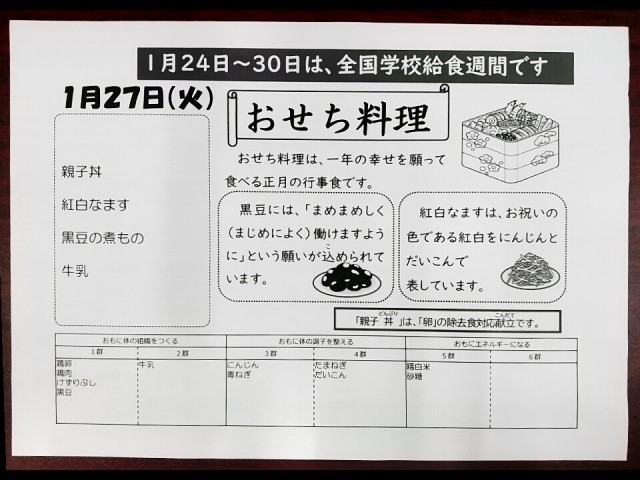 1月24日～30日は、全国学校給食週間です
1月27日(火)
おせち料理
親子丼
紅白なます
黒豆の煮もの
牛乳
おせち料理は、一年の幸せを願って
食べる正月の行事食です。
黒豆には、「まめまめしく
(まじめによく)働けますよう
に」という願いが込められて
こ
います。
紅白なますは、お祝いの
色である紅白をにんじんと
だいこんで
表しています。
どんぶり こんだて
「親子 丼 」は、「卵」の除去食対応献立です。
おもに体の組織をつくる おもに体の調子を整える おもにエネルギーになる
1群 2群 3群 4群 5群 6群
鶏卵 牛乳 にんじん たまねぎ 精白米
鶏肉 青ねぎ だいこん 砂糖
けずりぶし
黒豆